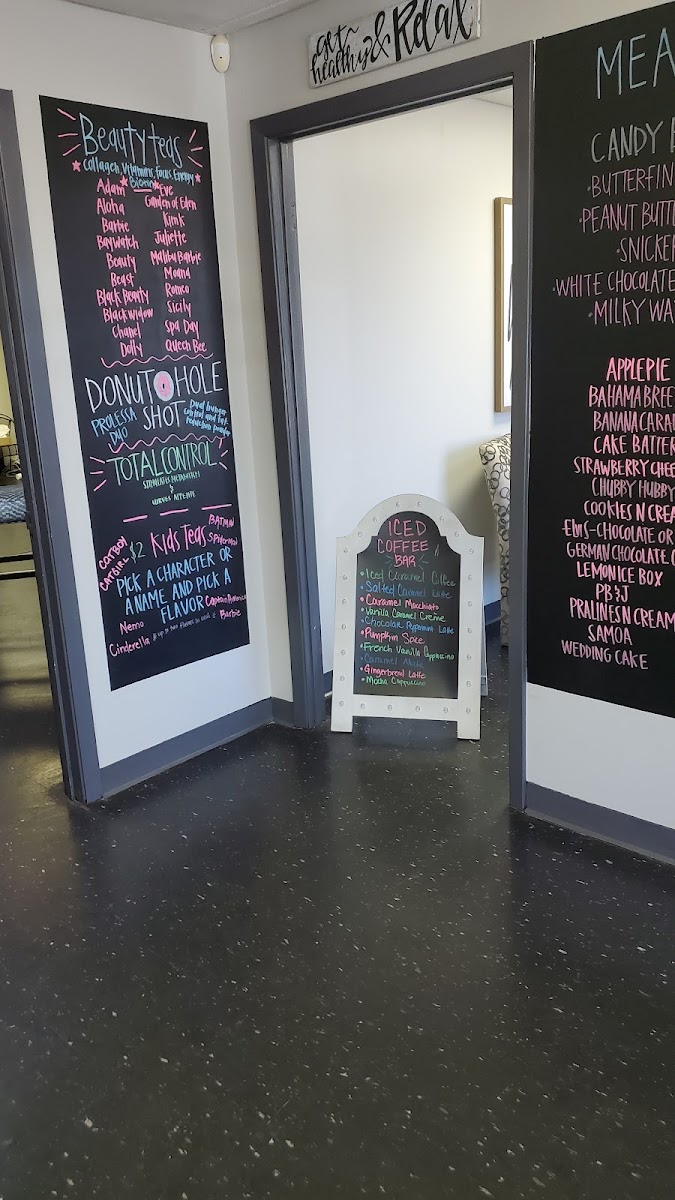 get healthy & Relax
Beauty teas
Collagen, Vitamins, Focus, Energy
Biotin
Adam
Aloha
Barbie
Baywatch
Beauty
Beast
Black Beauty
Black widow
Chanel
Dolly
Eve
Garden of Eden
Kink
Juliette
Malibu Barbie
Moana
Romeo
Sicily
Spa Day
Queen Bee
DONUT HOLE
SHOT
PROLESSA
DUO
Dual hunger
control and fat
reduction powder
TOTAL CONTROL
STIMULATES METABOLISM
&
CURVES APPETITE
$2 Kids Teas
CATBOY
CATGIRL
BATMAN
Spiderman
PICK A CHARACTER OR
A NAME AND PICK A
FLAVOR
Captain America
Barbie
Nemo
Cinderella
ICED
COFFEE
BAR
Iced Caramel Coffee
Salted Caramel Latte
Caramel Macchiato
Vanilla Caramel Creme
Chocolate Peppermint Latte
Pumpkin Spice
French Vanilla Cappuccino
Gingerbread Latte
Mocha Cappuccino
MEA
CANDY
BUTTERFIN
PEANUT BUTT
SNICKE
WHITE CHOCOLATE
MILKY WA
APPLEPIE
BAHAMA BREE
BANANA CARA
CAKE BATTER
STRAWBERRY CHEE
CHUBBY HUBBY
COOKIES N CREA
ELVIS-CHOCOLATE OR
GERMAN CHOCOLATE C
LEMON ICE BOX
PB&J
PRALINES N CREAM
SAMOA
WEDDING CAKE